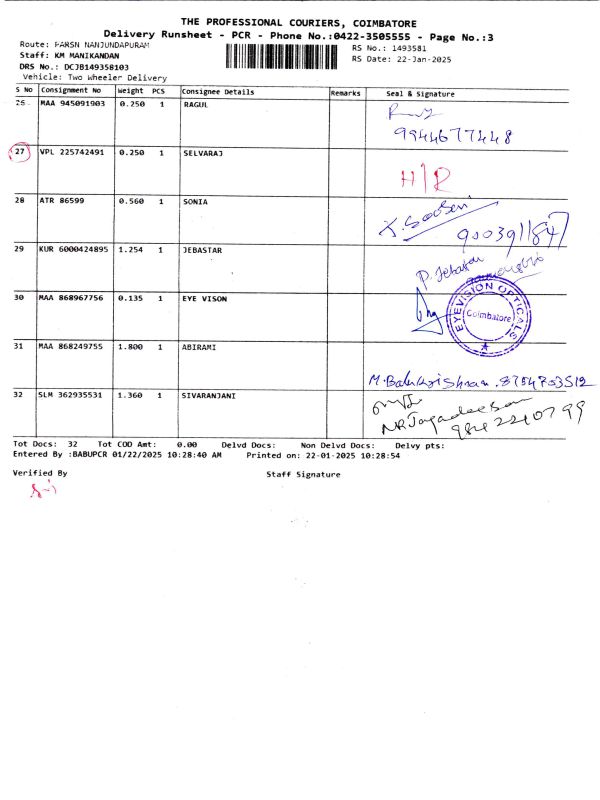 THE PROFESSIONAL COURIERS, COIMBATORE
Delivery Runsheet - PCR - Phone No.:0422-3505555 - Page No.:3
Route: PARSN NANJUNDAPURAM
RS No.: 1493581
Staff: KM MANIKANDAN
RS Date: 22-Jan-2025
DRS No.: DCJB149358103
Vehicle: Two Wheeler Delivery
S No Consignment No Weight PCS Consignee Details Remarks Seal & Signature
26 MAA 945091903 0.250 1 RAGUL
9944677448
27 VPL 225742491 0.250 1 SELVARAJ
28 ATR 86599 0.560 1 SONIA
9003911847
29 KUR 6000424895 1.254 1 JEBASTAR
P. Jebastar
30 MAA 868967756 0.135 1 EYE VISON
EYEVISION OPTICALS
Coimbatore
31 MAA 868249755 1.800 1 ABIRAMI
M. Balakrishnan. 8754703512
32 SLM 362935531 1.360 1 SIVARANJANI
NR Jagadeesan
Tot Docs: 32 Tot COD Amt: 0.00 Delvd Docs: Non Delvd Docs: Delvy pts:
Entered By :BABUPCR 01/22/2025 10:28:40 AM Printed on: 22-01-2025 10:28:54
Verified By Staff Signature